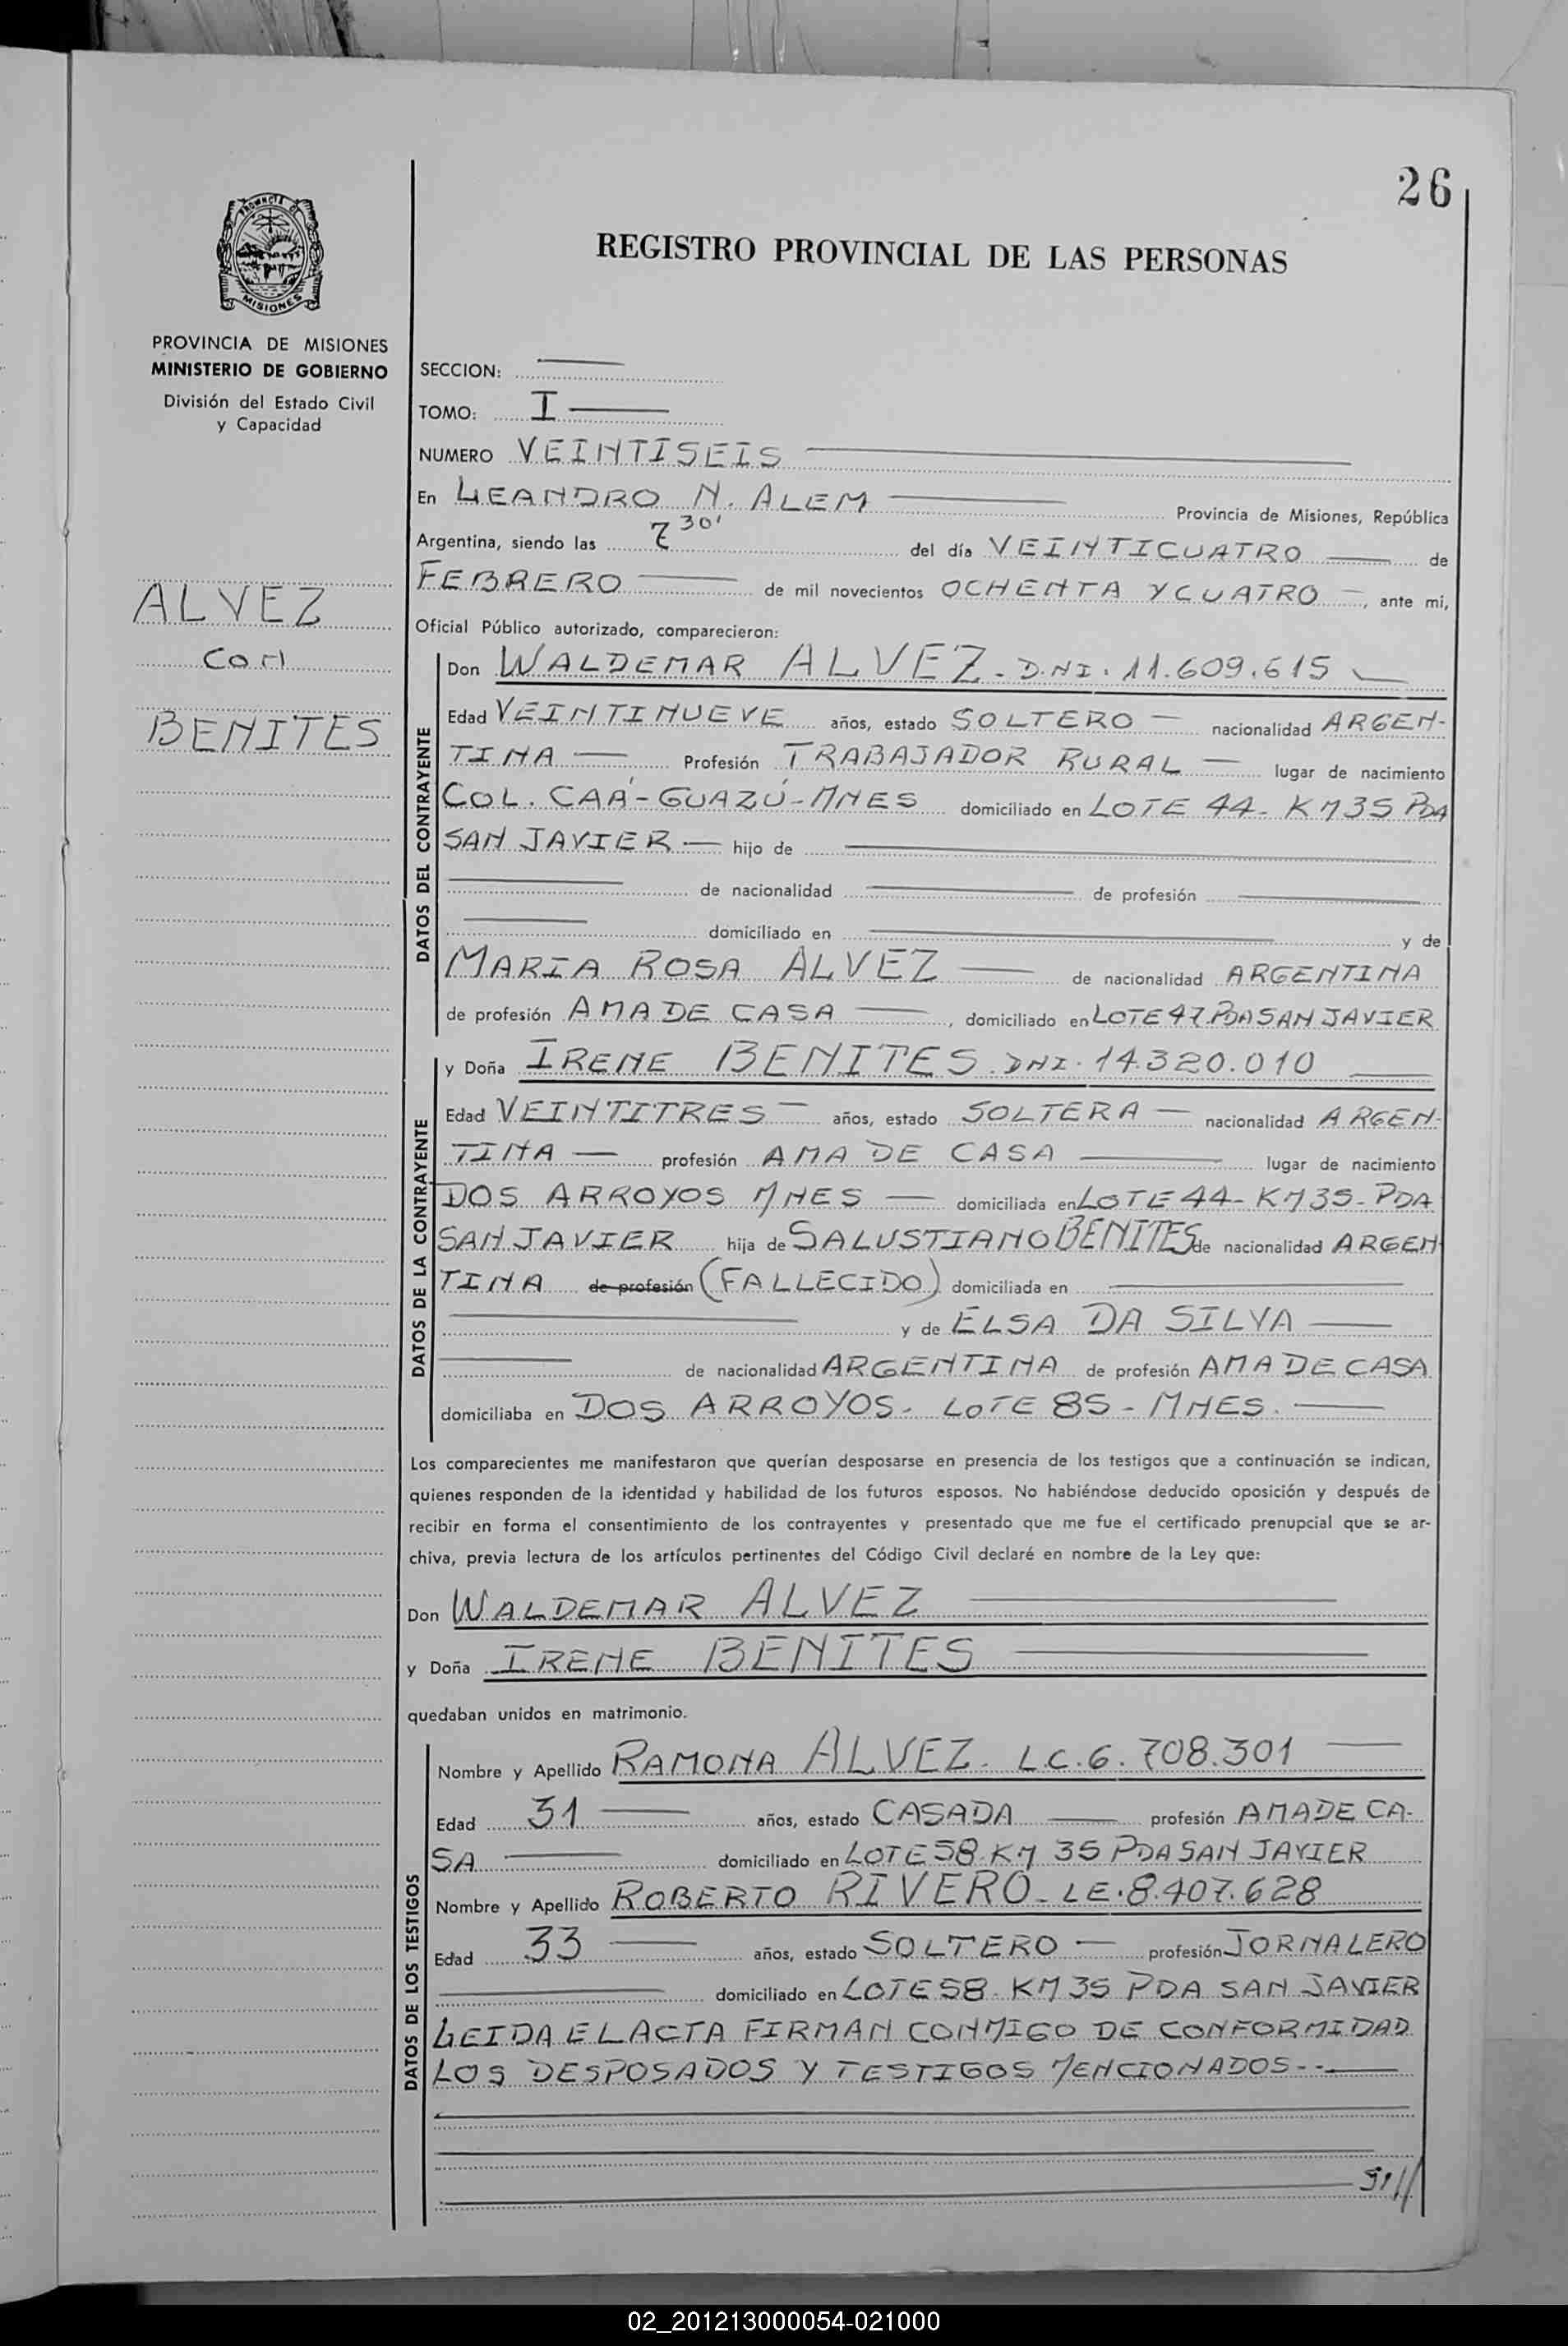 26
PROVINCIA DE
MISIONES
REGISTRO PROVINCIAL DE LAS PERSONAS
PROVINCIA DE MISIONES
MINISTERIO DE GOBIERNO
División del Estado Civil
y Capacidad
ALVEZ
CON
BENITES
SECCION:
TOMO: I
NUMERO VEINTISEIS
En LEANDRO N. ALEM Provincia de Misiones, República
Argentina, siendo las 7 30' del día VEINTICUATRO de
FEBRERO de mil novecientos OCHENTA Y CUATRO, ante mi,
Oficial Público autorizado, comparecieron:
DATOS DEL CONTRAYENTE
Don WALDEMAR ALVEZ. D.N.I. 11.609.615
Edad VEINTINUEVE años, estado SOLTERO nacionalidad ARGEN-
TINA Profesión TRABAJADOR RURAL lugar de nacimiento
COL. CAÁ-GUAZÚ-MNES domiciliado en LOTE 44- KM35 PDA
SAN JAVIER hijo de
de nacionalidad de profesión
domiciliado en y de
MARIA ROSA ALVEZ de nacionalidad ARGENTINA
de profesión AMA DE CASA, domiciliado en LOTE 47 PDA SAN JAVIER
DATOS DE LA CONTRAYENTE
y Doña IRENE BENITES. DNI. 14.320.010
Edad VEINTITRES años, estado SOLTERA nacionalidad ARGEN-
TINA profesión AMA DE CASA lugar de nacimiento
DOS ARROYOS MNES domiciliada en LOTE 44- KM35- PDA
SAN JAVIER hija de SALUSTIANO BENITES de nacionalidad ARGEN-
TINA de profesión (FALLECIDO) domiciliada en
y de ELSA DA SILVA
de nacionalidad ARGENTINA de profesión AMA DE CASA
domiciliaba en DOS ARROYOS- LOTE 85 - MNES.
Los comparecientes me manifestaron que querían desposarse en presencia de los testigos que a continuación se indican,
quienes responden de la identidad y habilidad de los futuros esposos. No habiéndose deducido oposición y después de
recibir en forma el consentimiento de los contrayentes y presentado que me fue el certificado prenupcial que se ar-
chiva, previa lectura de los artículos pertinentes del Código Civil declaré en nombre de la Ley que:
Don WALDEMAR ALVEZ
y Doña IRENE BENITES
quedaban unidos en matrimonio.
DATOS DE LOS TESTIGOS
Nombre y Apellido RAMONA ALVEZ- L.C. 6.708.301
Edad 31 años, estado CASADA profesión AMA DE CA-
SA domiciliado en LOTE 58 KM 35 PDA SAN JAVIER
Nombre y Apellido ROBERTO RIVERO- LE. 8.407.628
Edad 33 años, estado SOLTERO profesión JORNALERO
domiciliado en LOTE 58- KM 35 PDA SAN JAVIER
LEIDA EL ACTA FIRMAN CONMIGO DE CONFORMIDAD
LOS DESPOSADOS Y TESTIGOS MENCIONADOS--
02_201213000054-021000